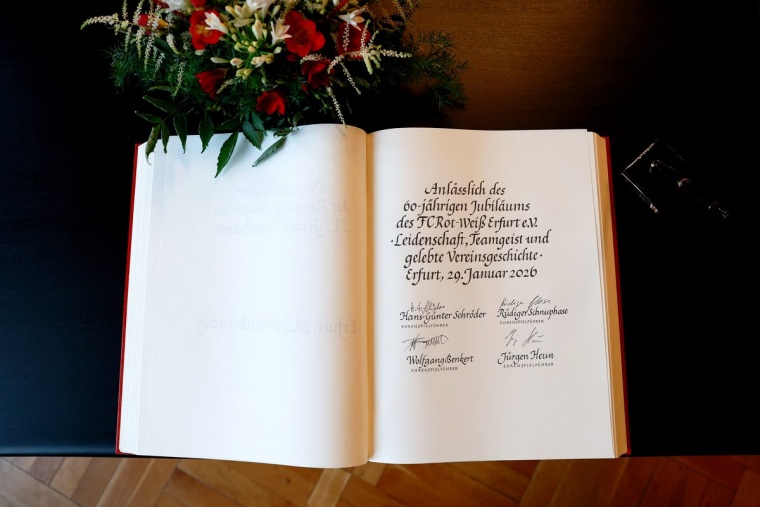 Anlässlich des
60-jährigen Jubiläums
des FC Rot-Weiß Erfurt e.V.
·Leidenschaft, Teamgeist und
gelebte Vereinsgeschichte·
Erfurt, 29. Januar 2026
Hans-Günter Schröder
EHRENSPIELFÜHRER
Rüdiger Schnuphase
EHRENSPIELFÜHRER
Wolfgang Benkert
EHRENSPIELFÜHRER
Jürgen Heun
EHRENSPIELFÜHRER